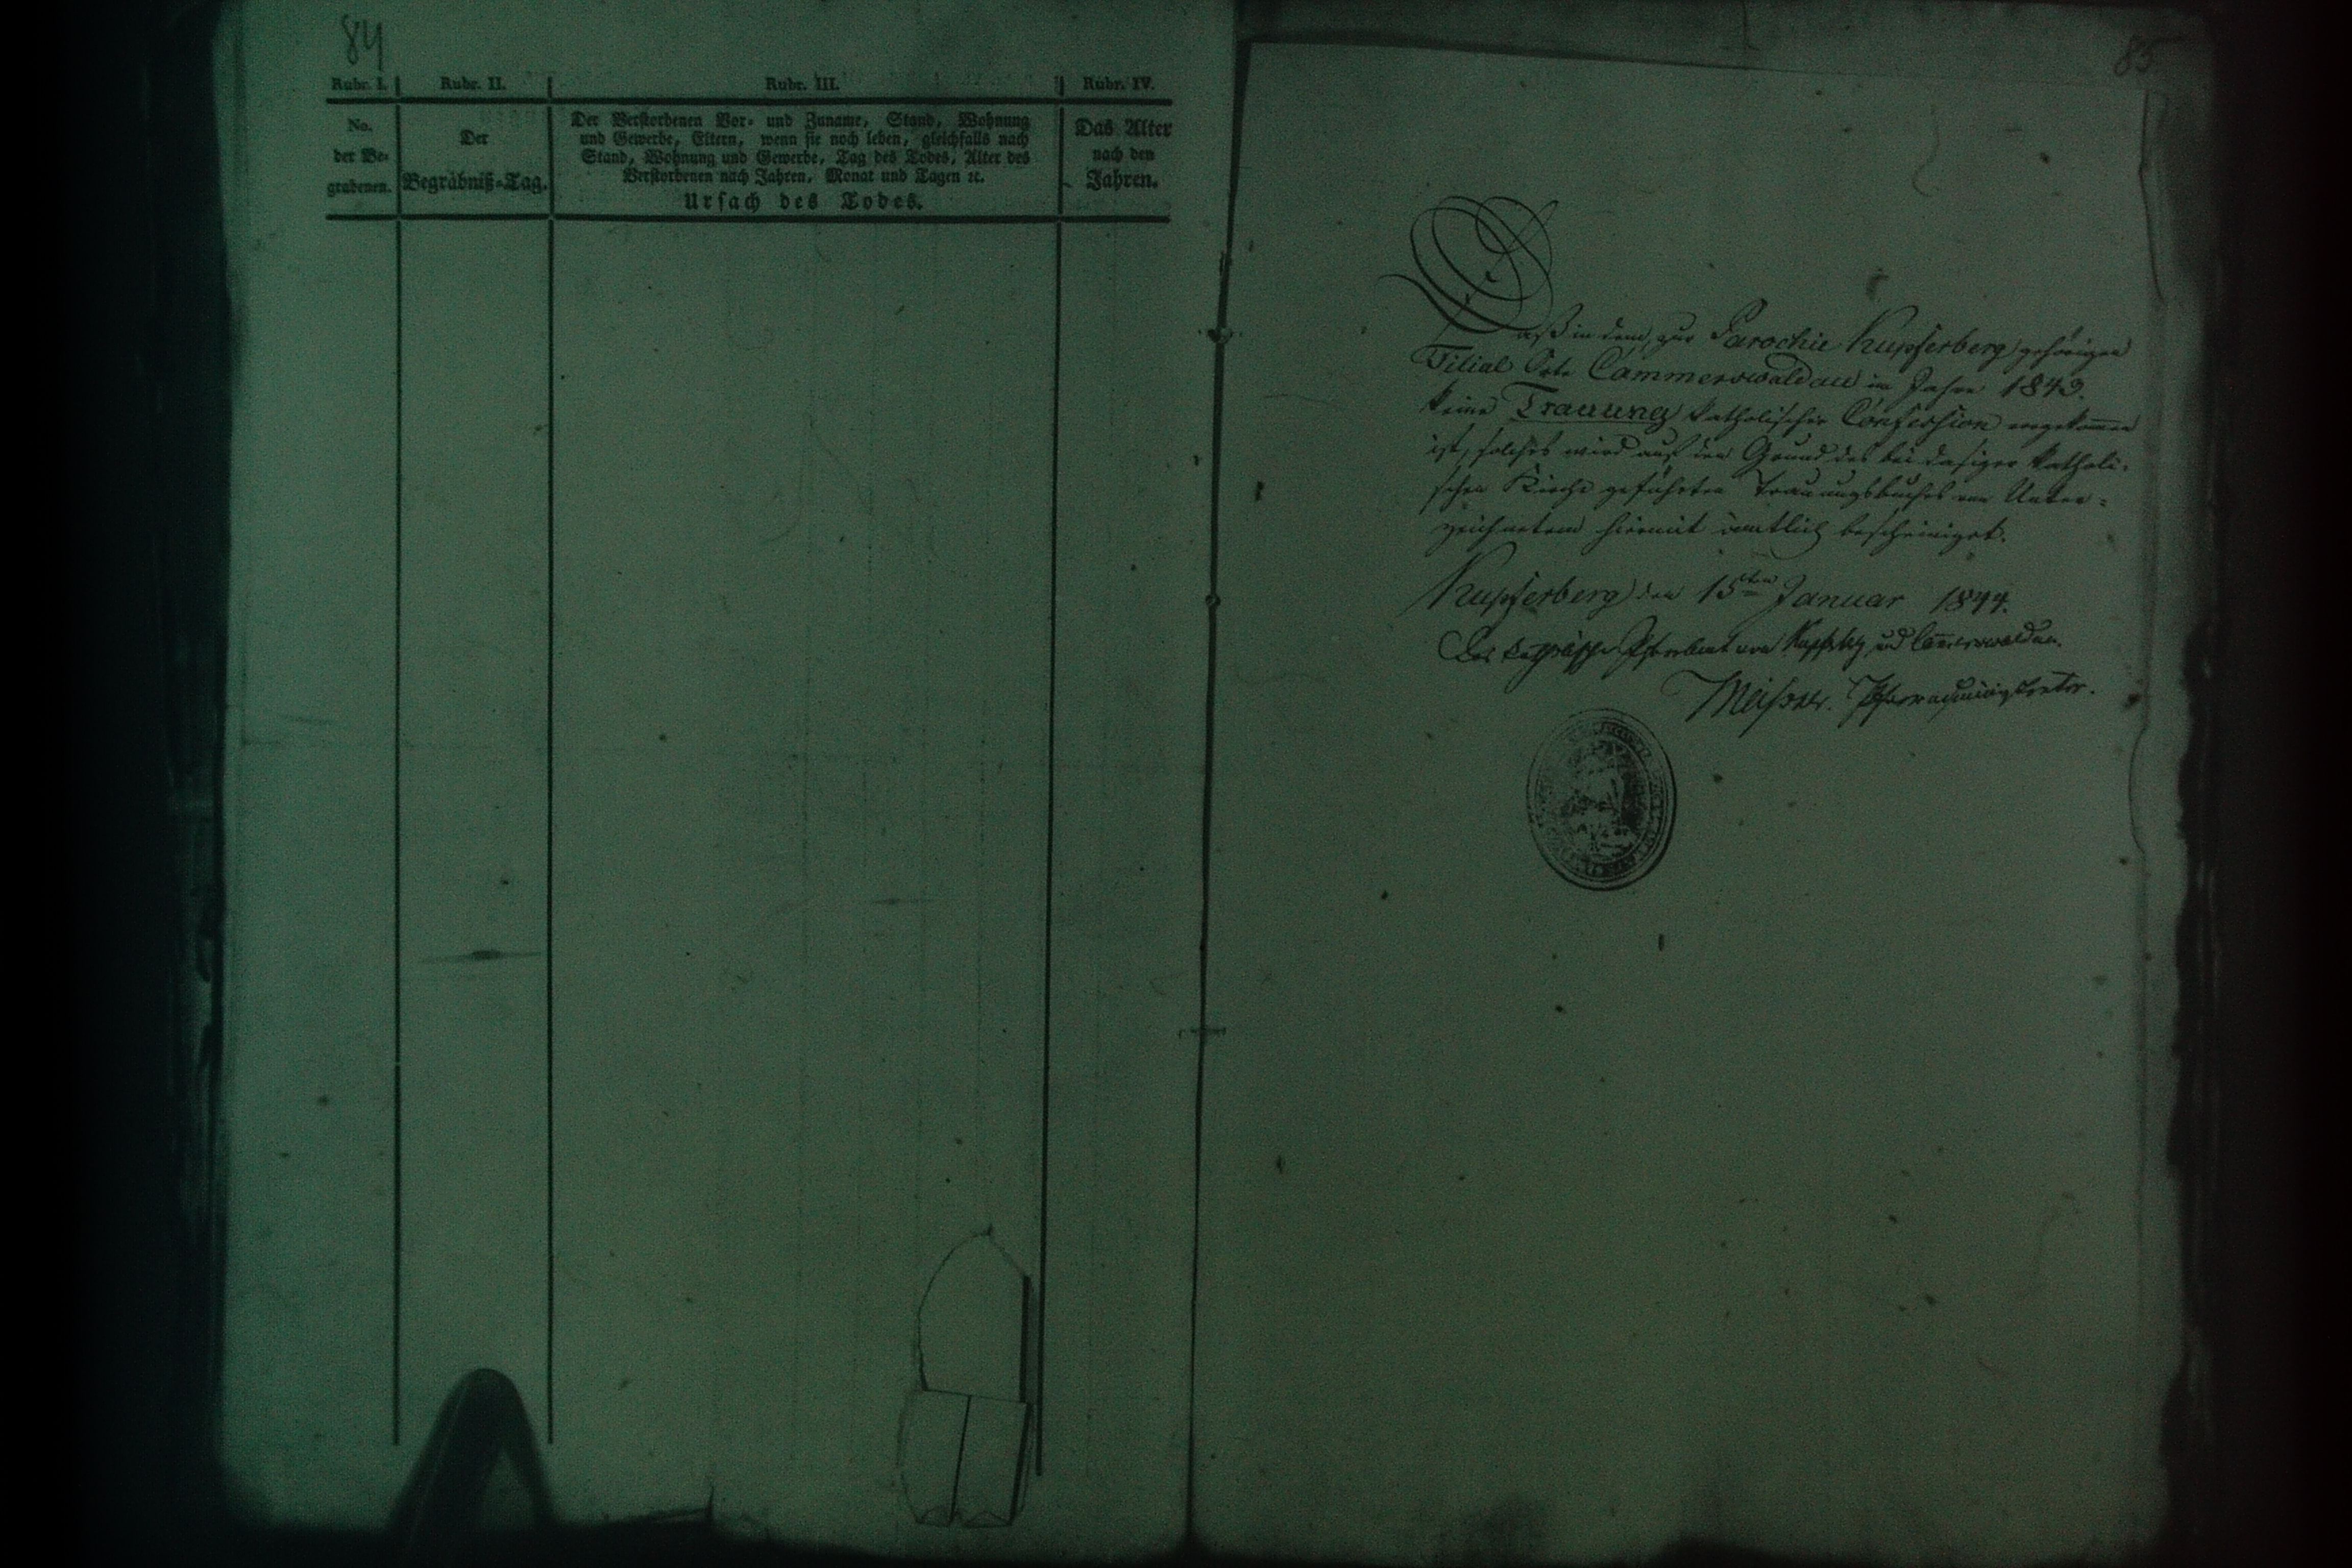 84
Rubr. I. Rubr. II. Rubr. III. Rubr. IV.
No.
der Be-
grabenen.
Der
Begräbniß-Tag.
Der Verstorbenen Vor- und Zuname, Stand, Wohnung
und Gewerbe, Eltern, wenn sie noch leben, gleichfalls nach
Stand, Wohnung und Gewerbe, Tag des Todes, Alter des
Verstorbenen nach Jahren, Monat und Tagen ꝛc.
Ursach des Todes.
Das Alter
nach den
Jahren.
85
Daß in dem zur Parochie Kupferberg gehörigen
Filial Orte Cammerswaldau im Jahre 1843.
keine Trauung katholischer Confession vorgekom̅en
ist, solches wird auf den Grund des bei dasiger katholi-
schen Kirche geführten Trauungsbuches von Unter-
zeichnetem hiermit amtlich bescheiniget.
Kupferberg den 15ten Januar 1844.
Das katholische Pfarramt von Kupferberg und Cam̅erswaldau.
Meißner. Pfarradministrator.